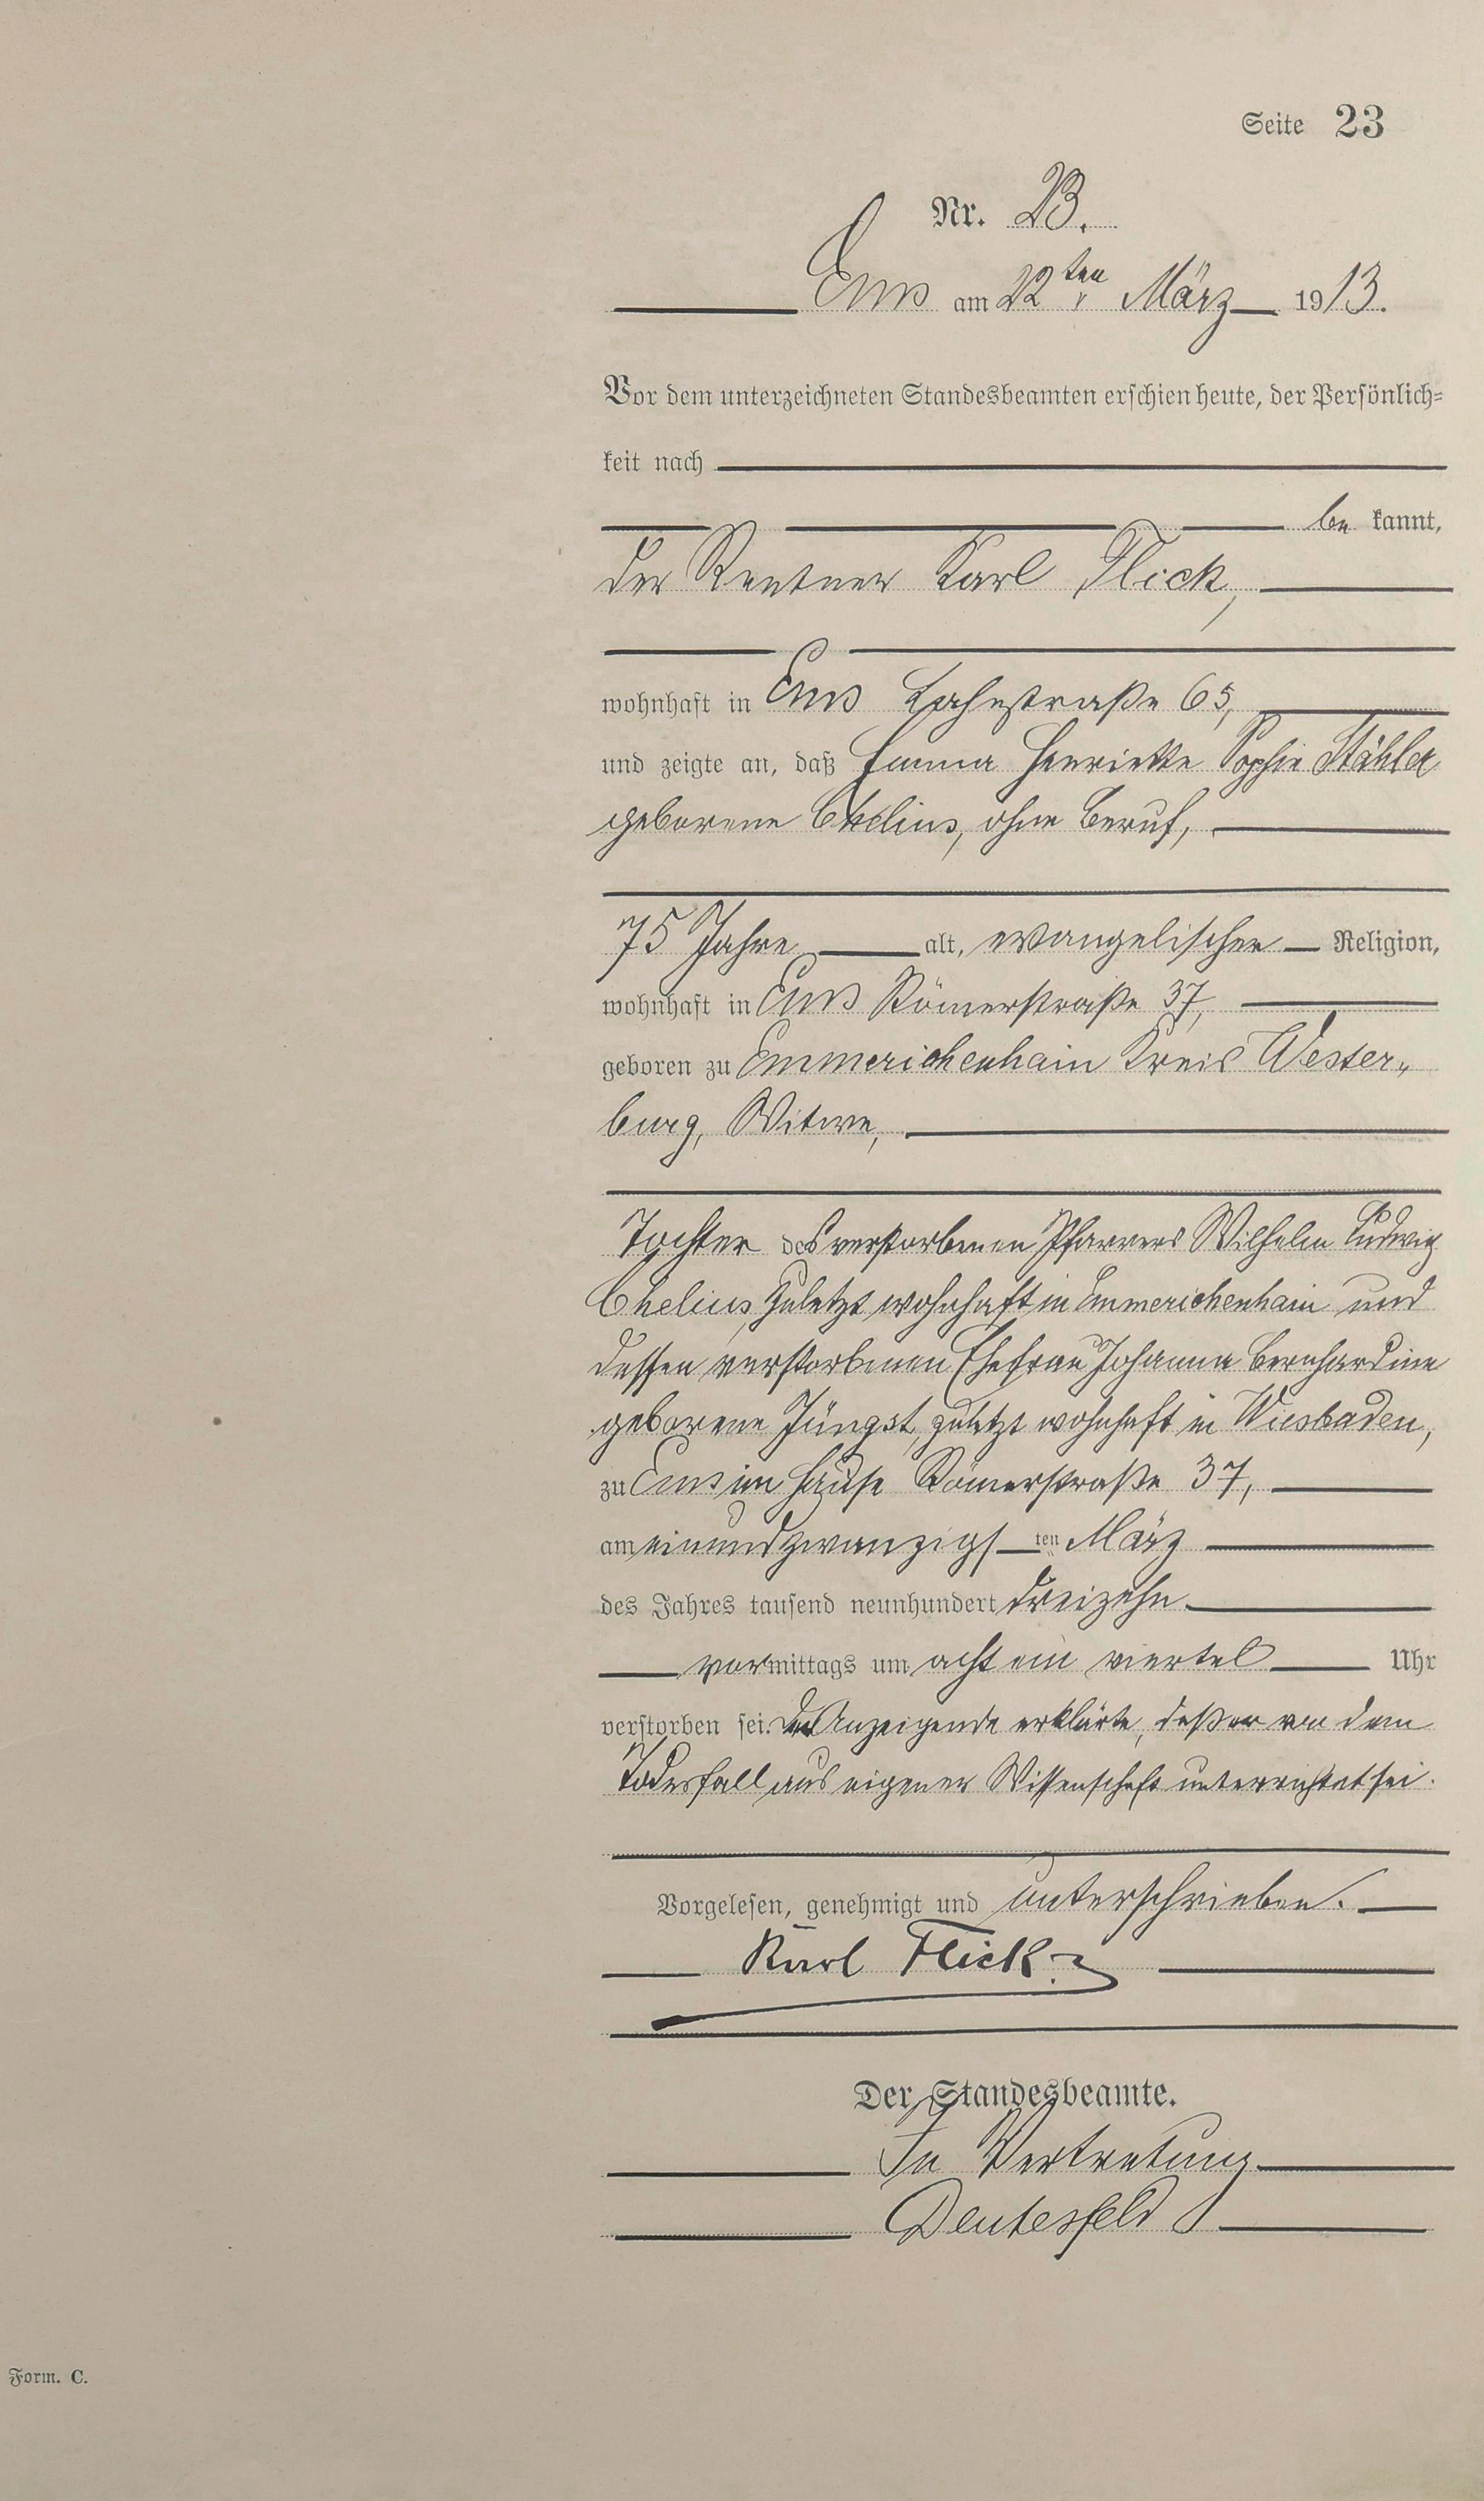 Seite 23
Nr. 23.
Ems am 22ten März 1913.
Vor dem unterzeichneten Standesbeamten erschien heute, der Persönlich-
keit nach
be kannt,
der Rentner Karl Flick,
wohnhaft in Ems Lahnstraße 65,
und zeigte an, daß Emma Henriette Sophie Stähler
geborene Chelius, ohne Beruf,
75 Jahre alt, evangelischer Religion,
wohnhaft in Ems Römerstraße 37,
geboren zu Emmerichenhain Kreis Wester-
burg, Witwe,
Tochter des verstorbenen Pfarrers Wilhelm Ludwig
Chelius, zuletzt wohnhaft in Emmerichenhain und
dessen verstorbenen Ehefrau Johanna Bernhardine
geborene Jüngst, zuletzt wohnhaft in Wiesbaden,
zu Ems im Hause Römerstraße 37,
am einundzwanzigsten März
des Jahres tausend neunhundert dreizehn
vormittags um acht ein viertel Uhr
verstorben sei. Der Anzeigende erklärte, daß er von dem
Todesfall aus eigener Wissenschaft unterrichtet sei.
Vorgelesen, genehmigt und unterschrieben.
Karl Flick.
Der Standesbeamte.
In Vertretung
Deutesfeld
Form. C.